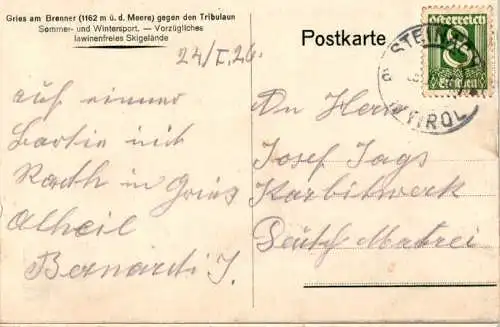 Gries am Brenner (1162 m ü. d. Meere) gegen den Tribulaun
Sommer- und Wintersport. — Vorzügliches
lawinenfreies Skigelände
24/I. 26.
auf einer
Partie mit
in Gries
Bernardi J.
Postkarte
Österreich
8
Groschen
STEINACH
TIROL
An Herrn
Josef Jags
Karbitwerk
Deutsch Matrei